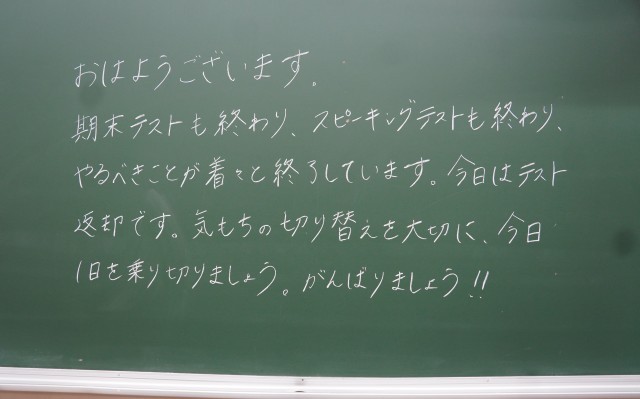 おはようございます。
期末テストも終わり、スピーキングテストも終わり、
やるべきことが着々と終了しています。今日はテスト
返却です。気もちの切り替えを大切に、今日
1日を乗り切りましょう。がんばりましょう!!